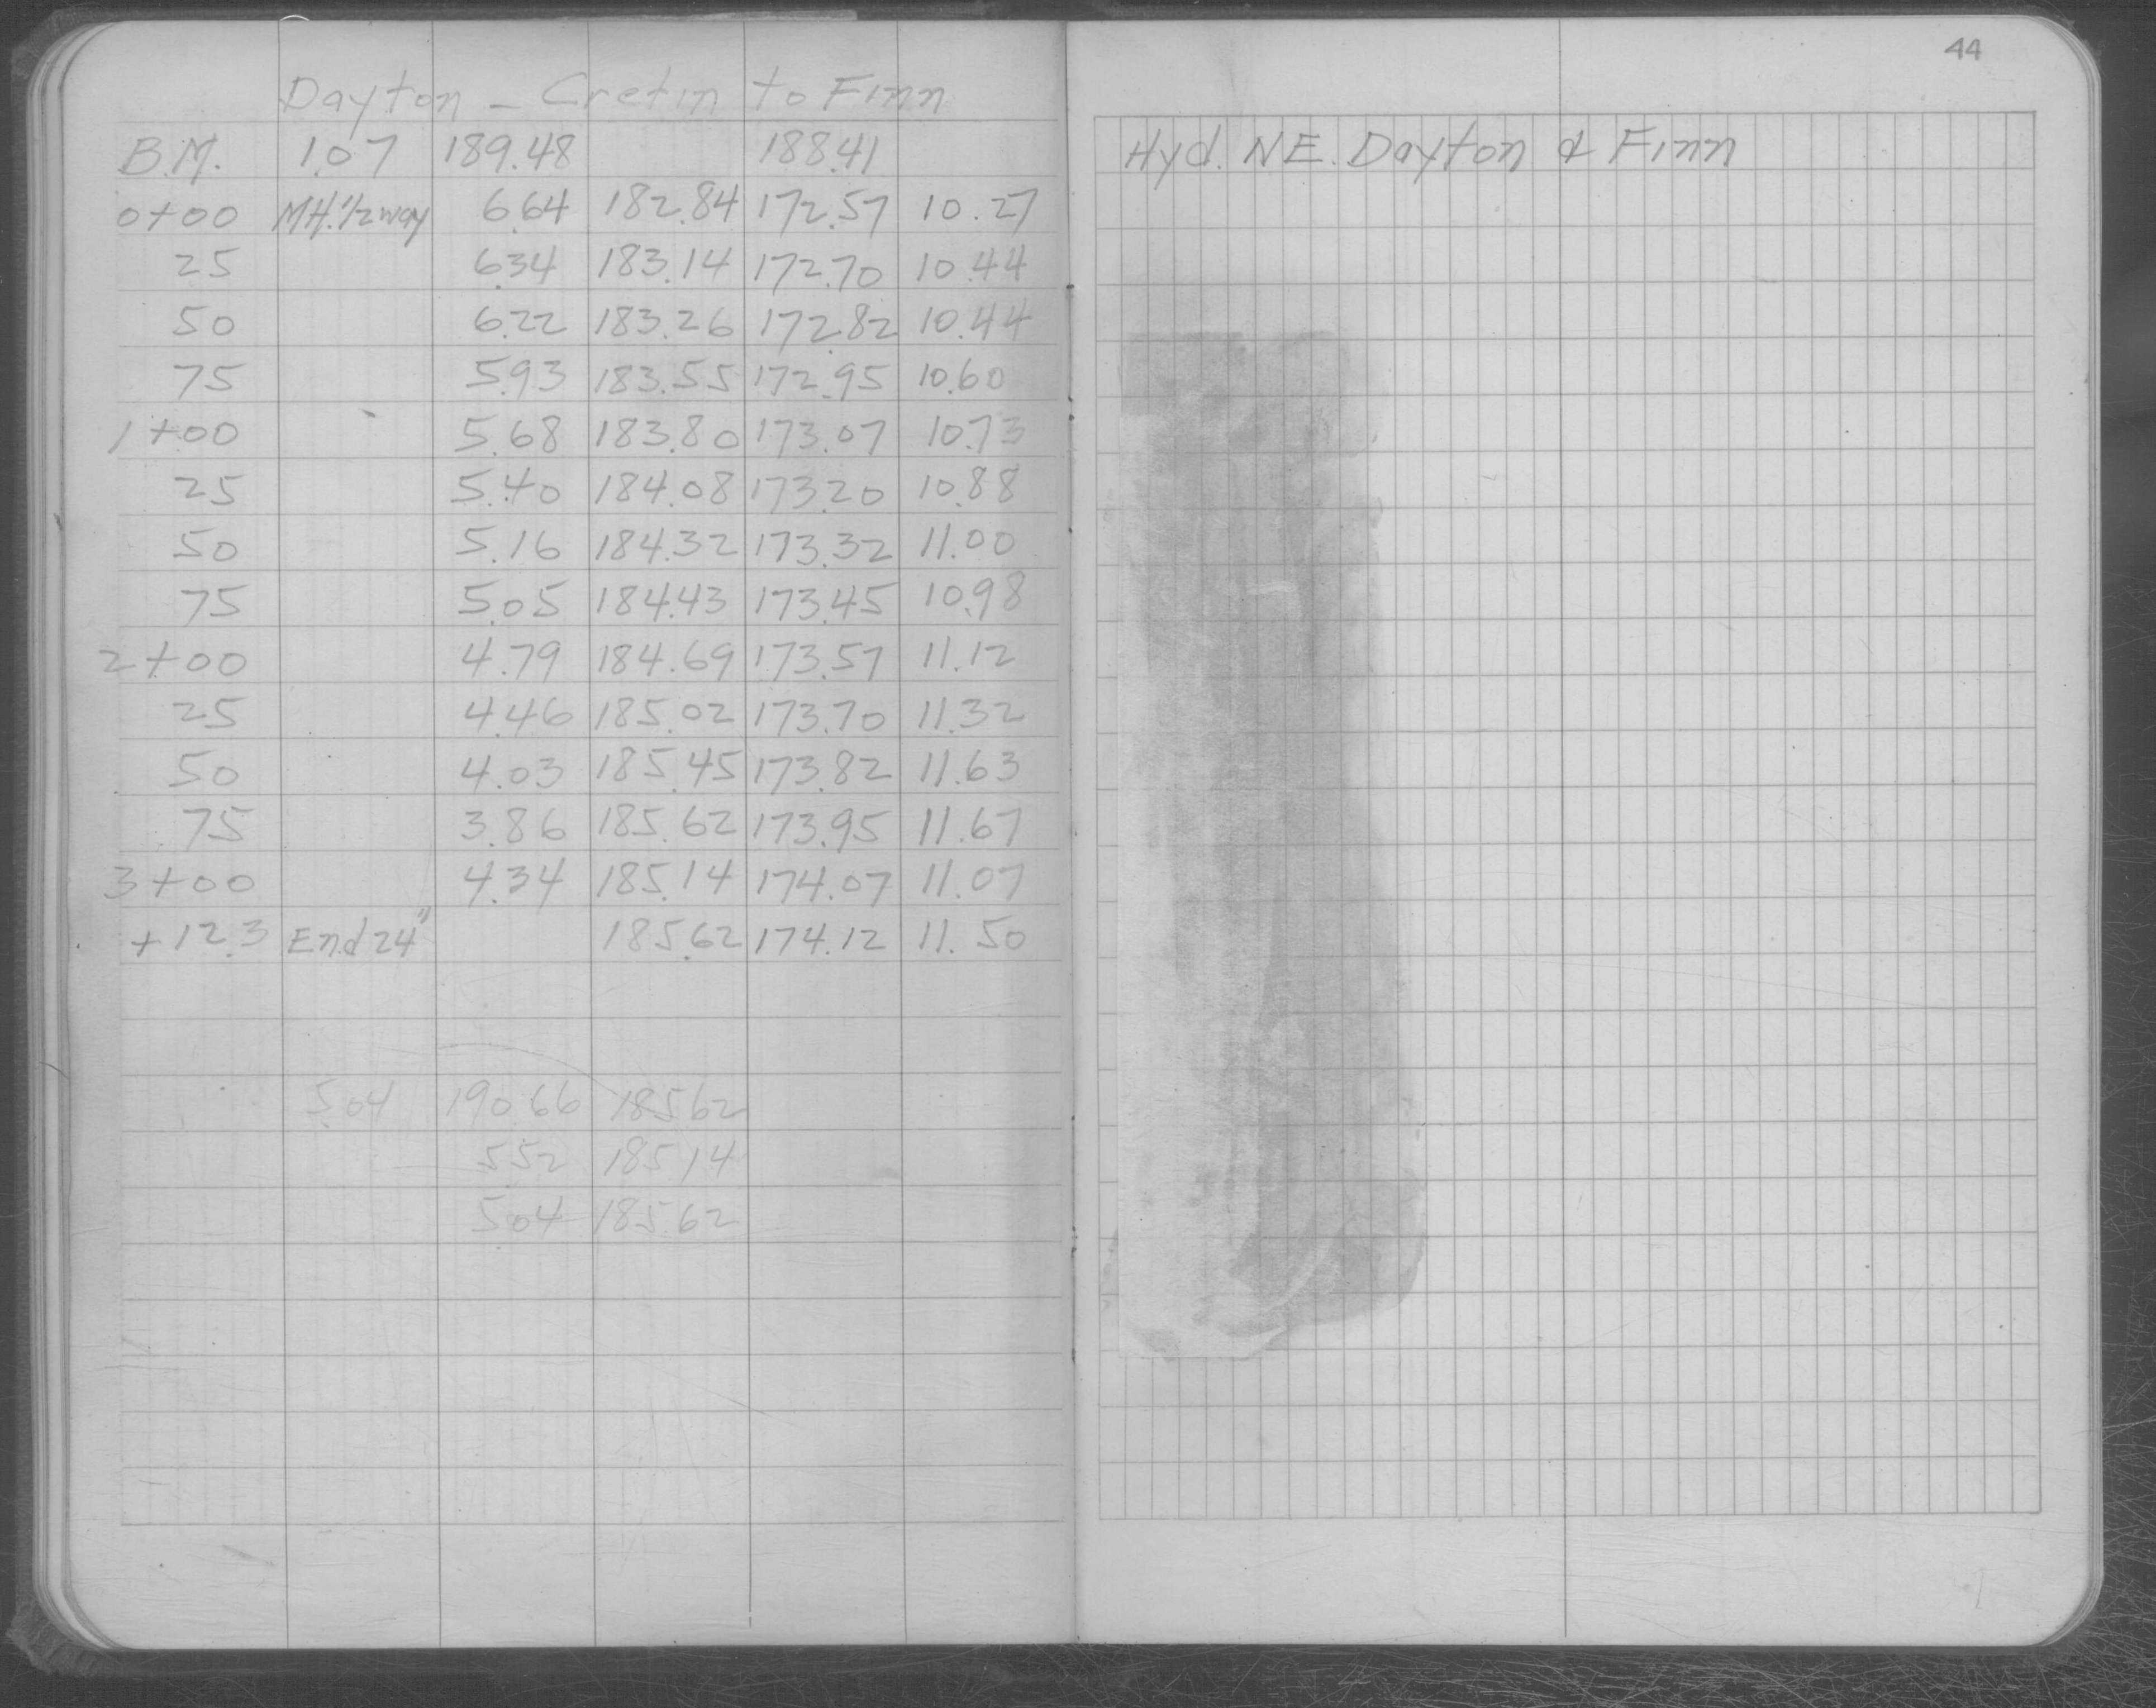 Dayton - Cretin to Finn
B.M. 1.07 189.48 188.41
0+00 MH. 1/2 way 6.64 182.84 172.57 10.27
25 6.34 183.14 172.70 10.44
50 6.22 183.26 172.82 10.44
75 5.93 183.55 172.95 10.60
1+00 5.68 183.80 173.07 10.73
25 5.40 184.08 173.20 10.88
50 5.16 184.32 173.32 11.00
75 5.05 184.43 173.45 10.98
2+00 4.79 184.69 173.57 11.12
25 4.46 185.02 173.70 11.32
50 4.03 185.45 173.82 11.63
75 3.86 185.62 173.95 11.67
3+00 4.34 185.14 174.07 11.07
+12.3 End 24" 185.62 174.12 11.50
5.04 190.66 185.62
5.52 185.14
5.04 185.62
44
Hyd. N.E. Dayton & Finn